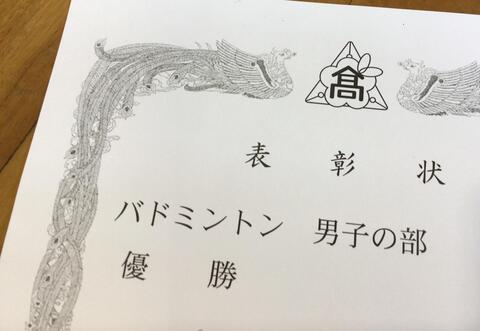 髙
表彰状
バドミントン 男子の部
優勝